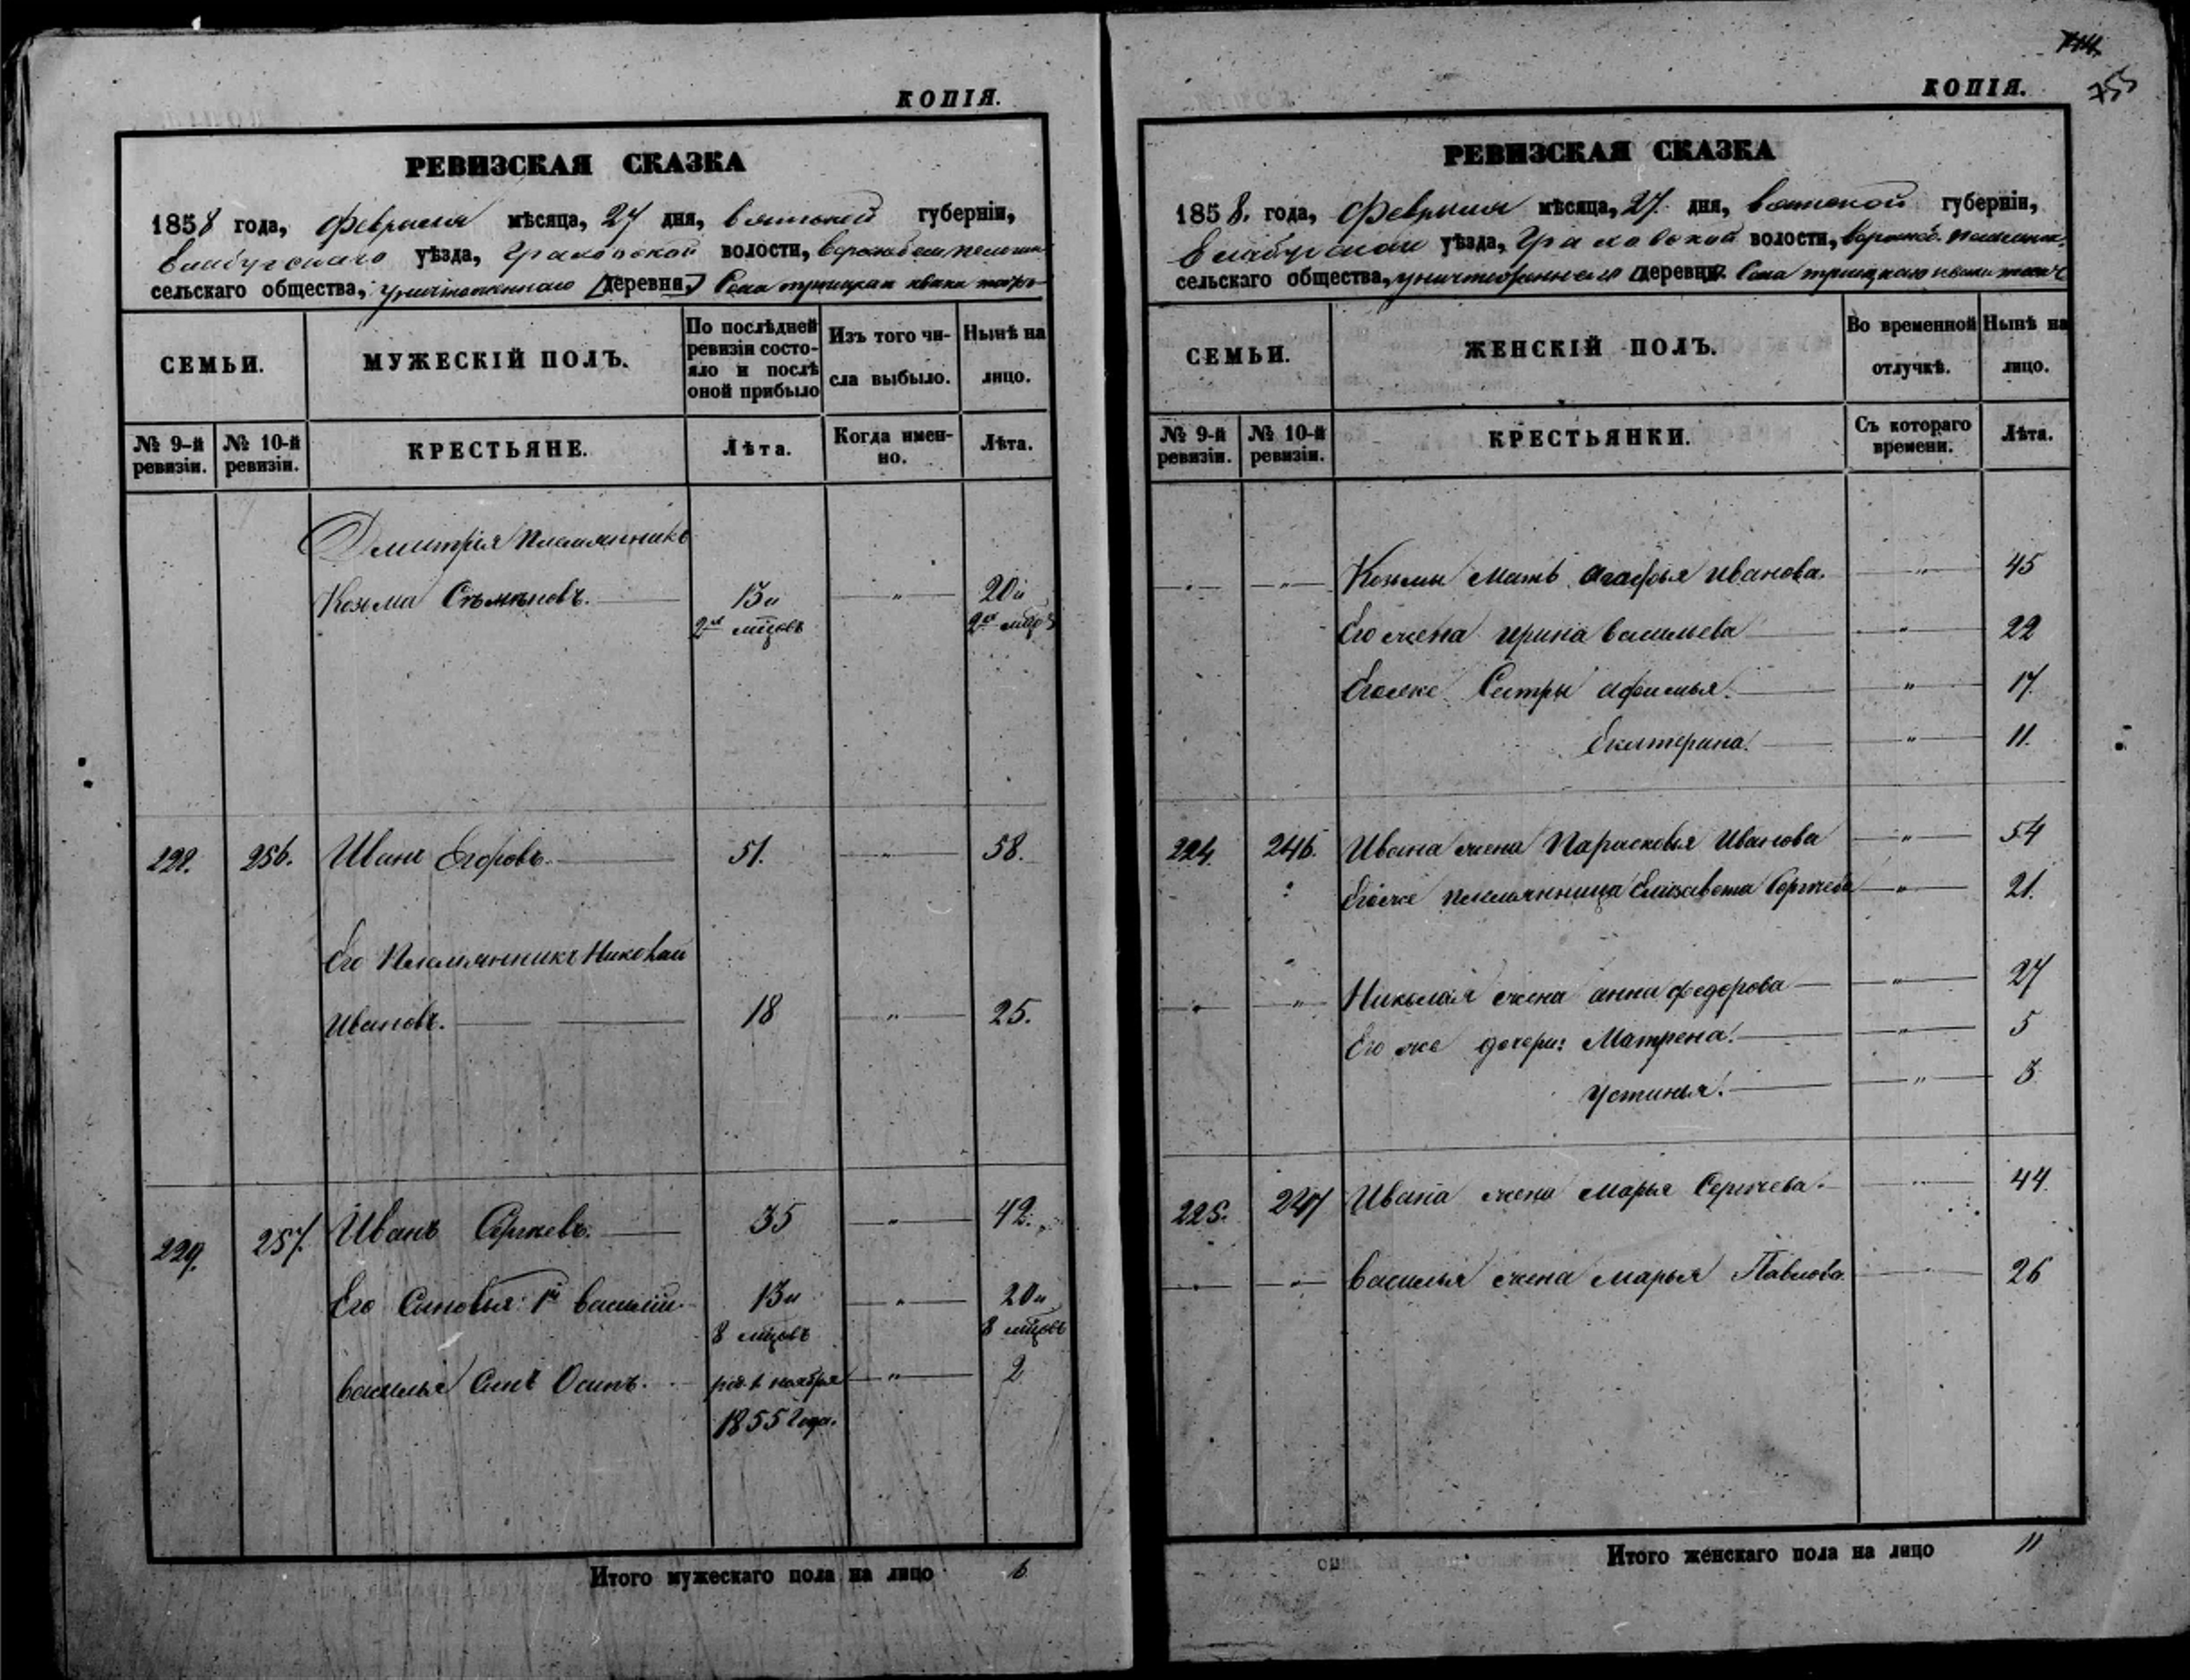 КОПІЯ.
РЕВИЗСКАЯ СКАЗКА
1858 года, Февраля мѣсяца, 27 дня, Вятской губерніи,
Елабугскаго уѣзда, Граховской волости,
сельскаго общества, уничтоженнаго [деревни] Села троицкаго
СЕМЬИ.
МУЖЕСКІЙ ПОЛЪ.
По послѣдней ревизіи состояло и послѣ оной прибыло
Изъ того числа выбыло.
Нынѣ на лицо.
№ 9-й ревизіи.
№ 10-й ревизіи.
КРЕСТЬЯНЕ.
Лѣта.
Когда именно.
Лѣта.
Дмитрія Племянникъ
Козма Съмѣновъ. 13и " 20и
2хъ мцовъ 2хъ мцовъ
222. 256. Иванъ Егоровъ. 51. " 58.
Его Племянникъ Николай
Ивановъ. 18 " 25.
229. 257. Иванъ Сергѣевъ. 35 " 42.
Его Сыновья: 1й Василій. 13и " 20и
8 мцовъ 8 мцовъ
Василья Сынъ Осипъ. ноября " 2
1855 Года.
Итого мужескаго пола на лицо 6
755
КОПІЯ.
РЕВИЗСКАЯ СКАЗКА
1858. года, Февраля мѣсяца, 27. дня, Вятской губерніи,
Елабугскаго уѣзда, Граховской волости,
сельскаго общества, уничтоженнаго [деревни] Села троицкаго
СЕМЬИ.
ЖЕНСКІЙ ПОЛЪ.
Во временной отлучкѣ.
Нынѣ на лицо.
№ 9-й ревизіи.
№ 10-й ревизіи.
КРЕСТЬЯНКИ.
Съ котораго времени.
Лѣта.
" " Козьмы Мать Агафья Иванова. " 45
Его жена Ирина Васильева " 22
Егоже Сестры Афимья. " 17.
Екатерина. " 11.
224. 246. Ивана жена Парасковья Иванова " 54
Егоже племянница Елизавета Сергѣева " 21.
" " Николая жена Анна Федорова " 27
Его же дочери: Матрена. " 5
Устинья. " 3
225. 247 Ивана жена Марья Сергѣева. " 44
" " Василья жена Марья Павлова. " 26
Итого женскаго пола на лицо 11